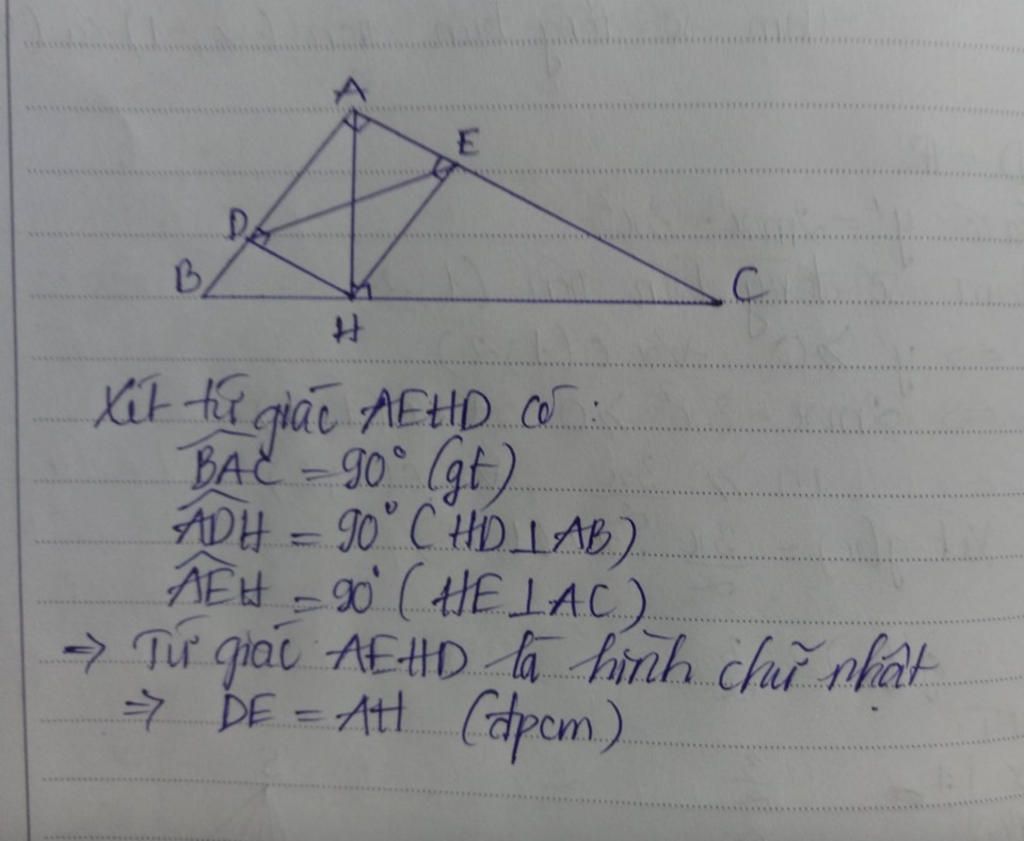 A
E
D
B
C
H
Xét tứ giác AEHD có:
BAC = 90° (gt)
ADH = 90° (HD⊥AB)
AEH = 90° (HE⊥AC)
=> Tứ giác AEHD là hình chữ nhật
=> DE = AH (đpcm)